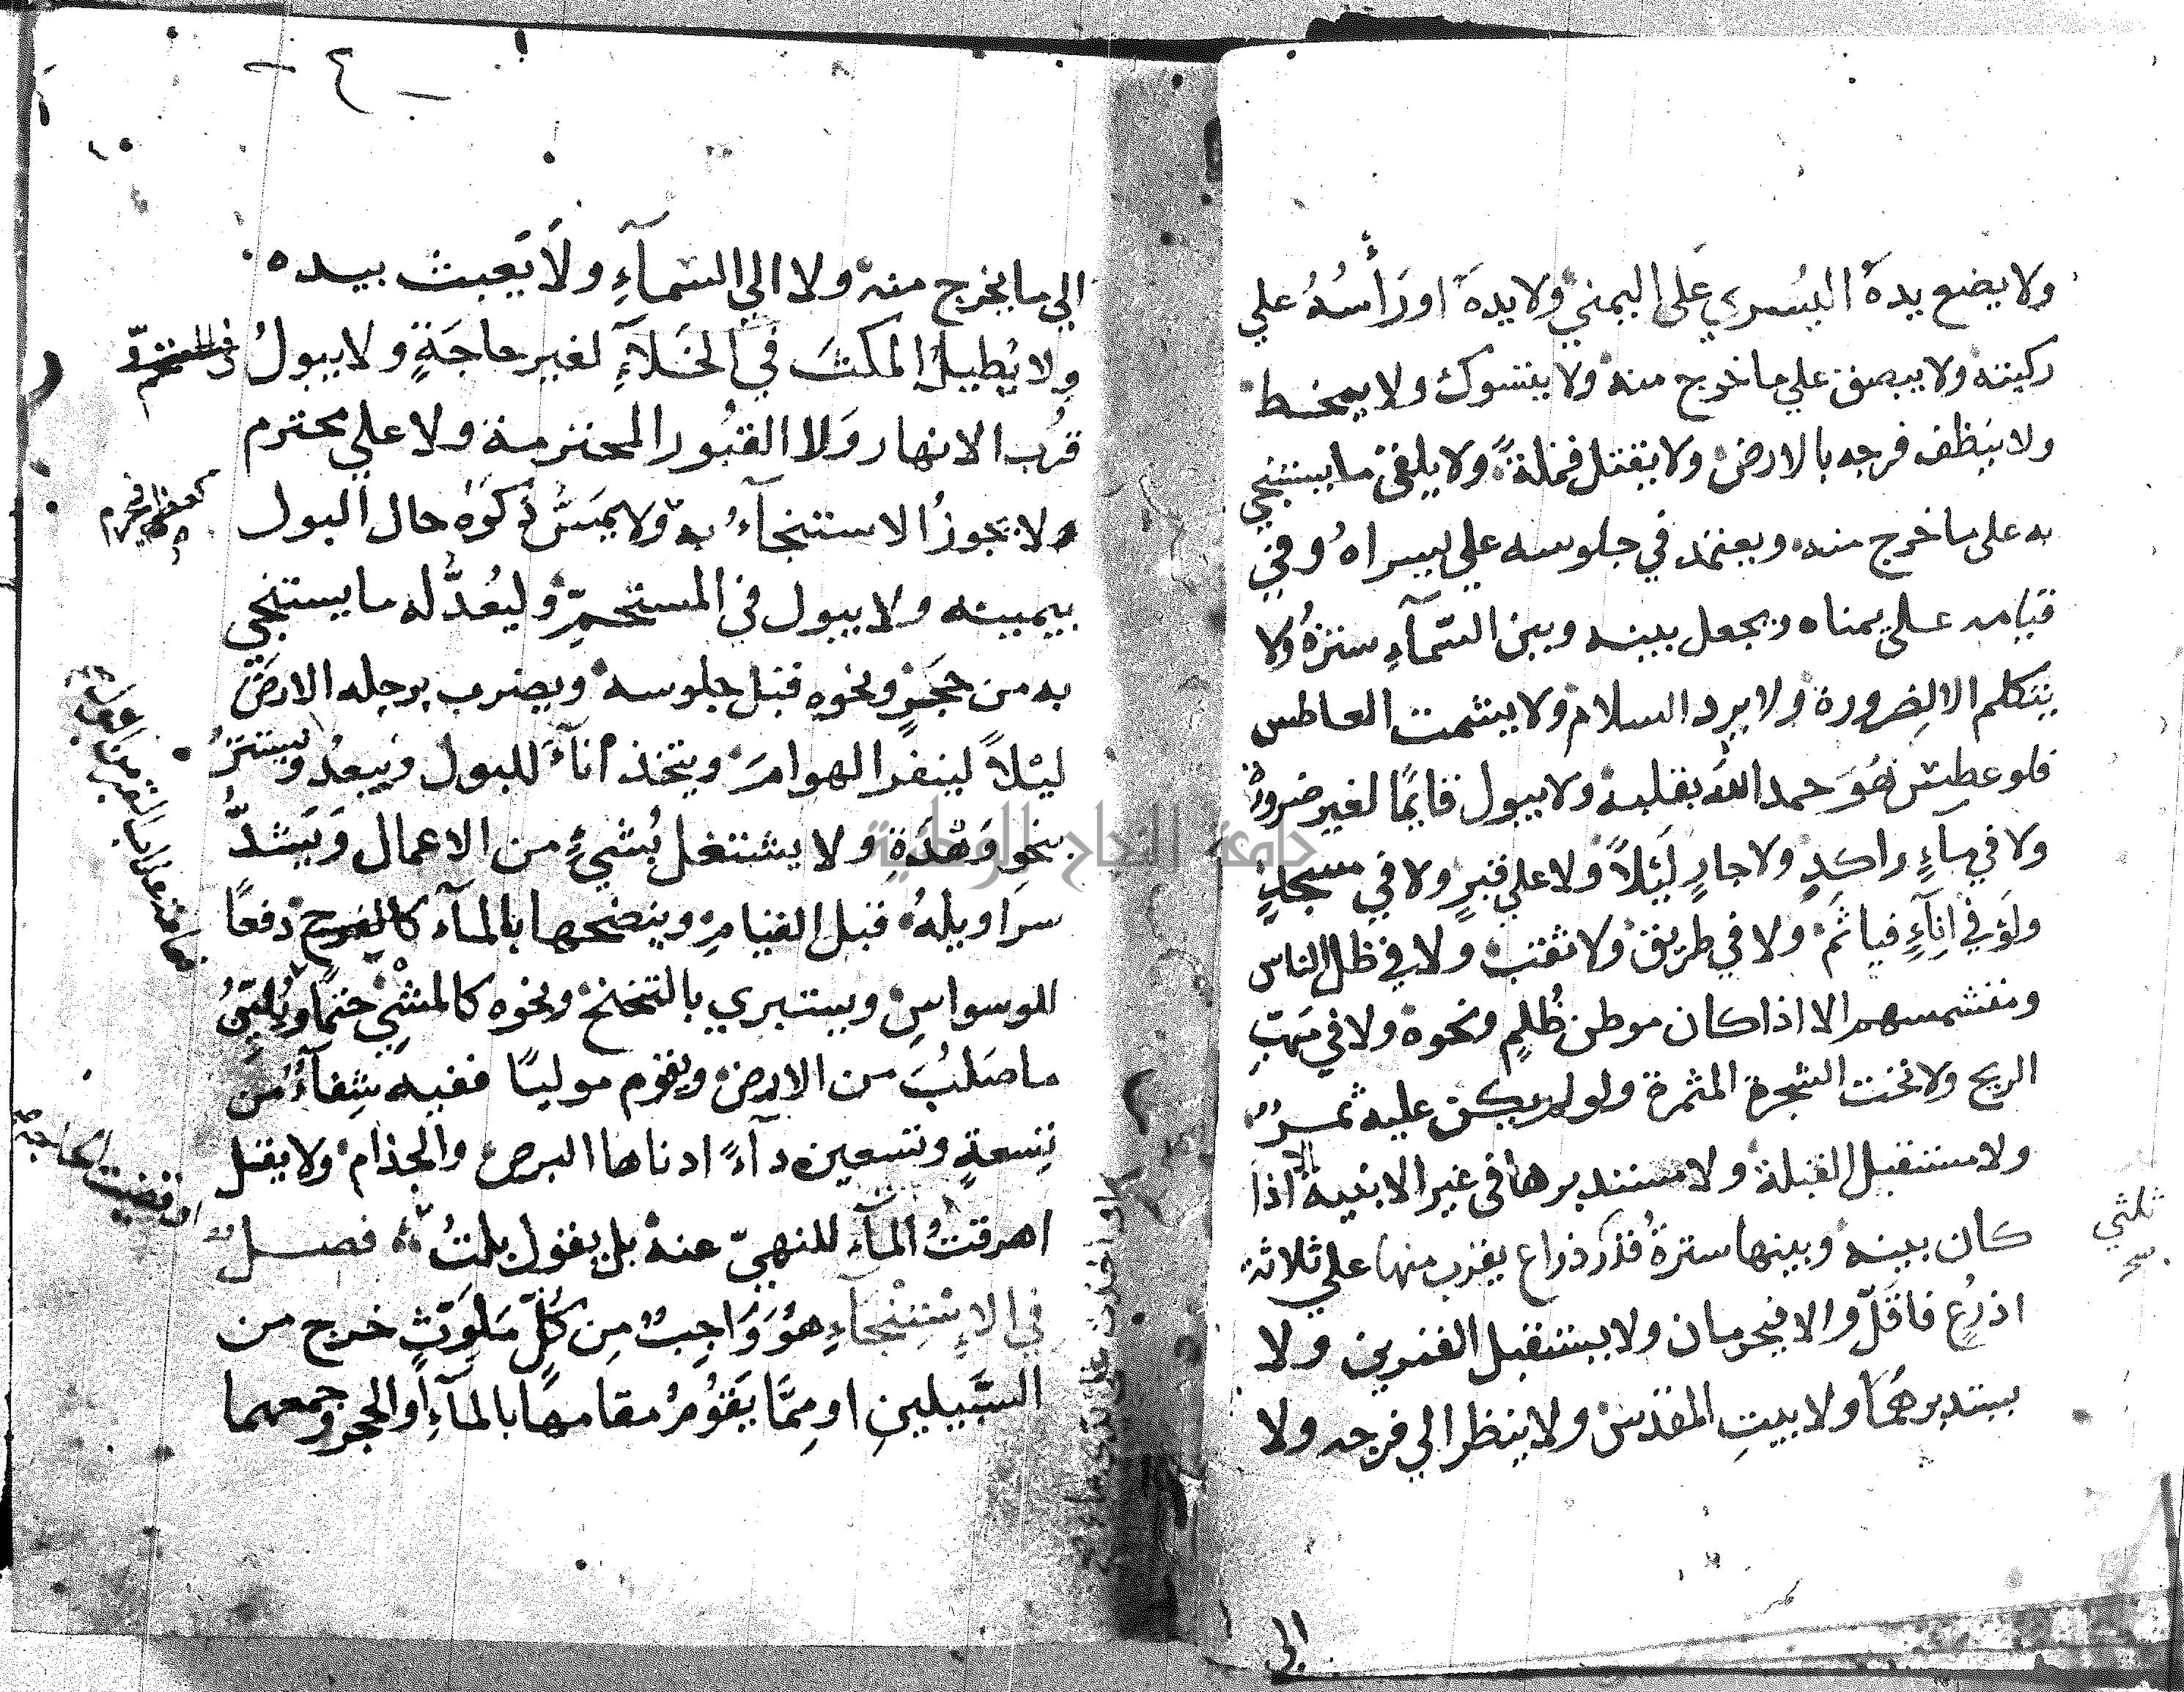 ولا يضع يده اليسري على اليمني ولا يده او رأسه علي
ركبته ولا يبصق علي ما خرج منه ولا يتسوك ولا يمخط
ولا ينظف فرجه بالارض ولا يقتل قملة ولا يلقي ما يستنجي
به على ما خرج منه ويعتمد في جلوسه علي يسراه وفي
قيامه علي يمناه ويجعل بينه وبين السمآء سترة ولا
يتكلم الا لضرورة ولا يرد السلام ولا يشمت العاطس
فلو عطس هو حمد الله بقلبه ولا يبول قايما لغير ضرورة
ولا في مآء راكد ولا جار ليلا ولا علي قبر ولا في مسجد
ولو في انآء فياثم ولا في طريق ولا ثقب ولا في ظل الناس
ومتشمسهم الا اذا كان موطن ظلم ونحوه ولا في مهب
الريح ولا تحت الشجرة المثمرة ولو لم يكن عليه ثمر
ولا مستقبل القبلة ولا مستدبرها في غير الابنية الا اذا
كان بينه وبينها سترة قدر ذراع يقرب منها علي ثلاثة
اذرع فاقل والا فيحرمان ولا يستقبل القمرين ولا
يستدبرهما ولا بيت المقدس ولا ينظر الي فرجه ولا
ثلثي
الى
- ٤ -
الي ما يخرج منه ولا الي السمآء ولا يعبث بيده
ولا يطيل المكث في الخلآء لغير حاجة ولا يبول
قرب الانهار ولا القبور المحترمة ولا علي محترم
ولا يجوز الاستنجآء به ولا يمس ذكره حال البول
بيمينه ولا يبول في المستحم وليعد له ما يستنجي
به من حجر ونحوه قبل جلوسه ويضرب برجله الارض
ليلا لينفر الهوام ويتخذ انآء للبول ويبعد ويستتر
بنحو وهدة ولا يشتغل بشيء من الاعمال ويشد
سراويله قبل القيام وينضحها بالمآء كالفرج دفعا
للوسواس ويستبري بالتنحنح ونحوه كالمشي حتما ويلين
ما صلب من الارض ويقوم موليا ففيه شفآء من
تسعة وتسعين دآء ادناها البرص والجذام ولا يقل
اهرقت المآء للنهي عنه بل يقول بلت فصل
في الاستنجآء هو واجب من كل ملوث خرج من
السبيلين او مما يقوم مقامها بالمآء او الحجر وجمعهما
او قضيت الحاجة
جامعة النجاح الوطنية